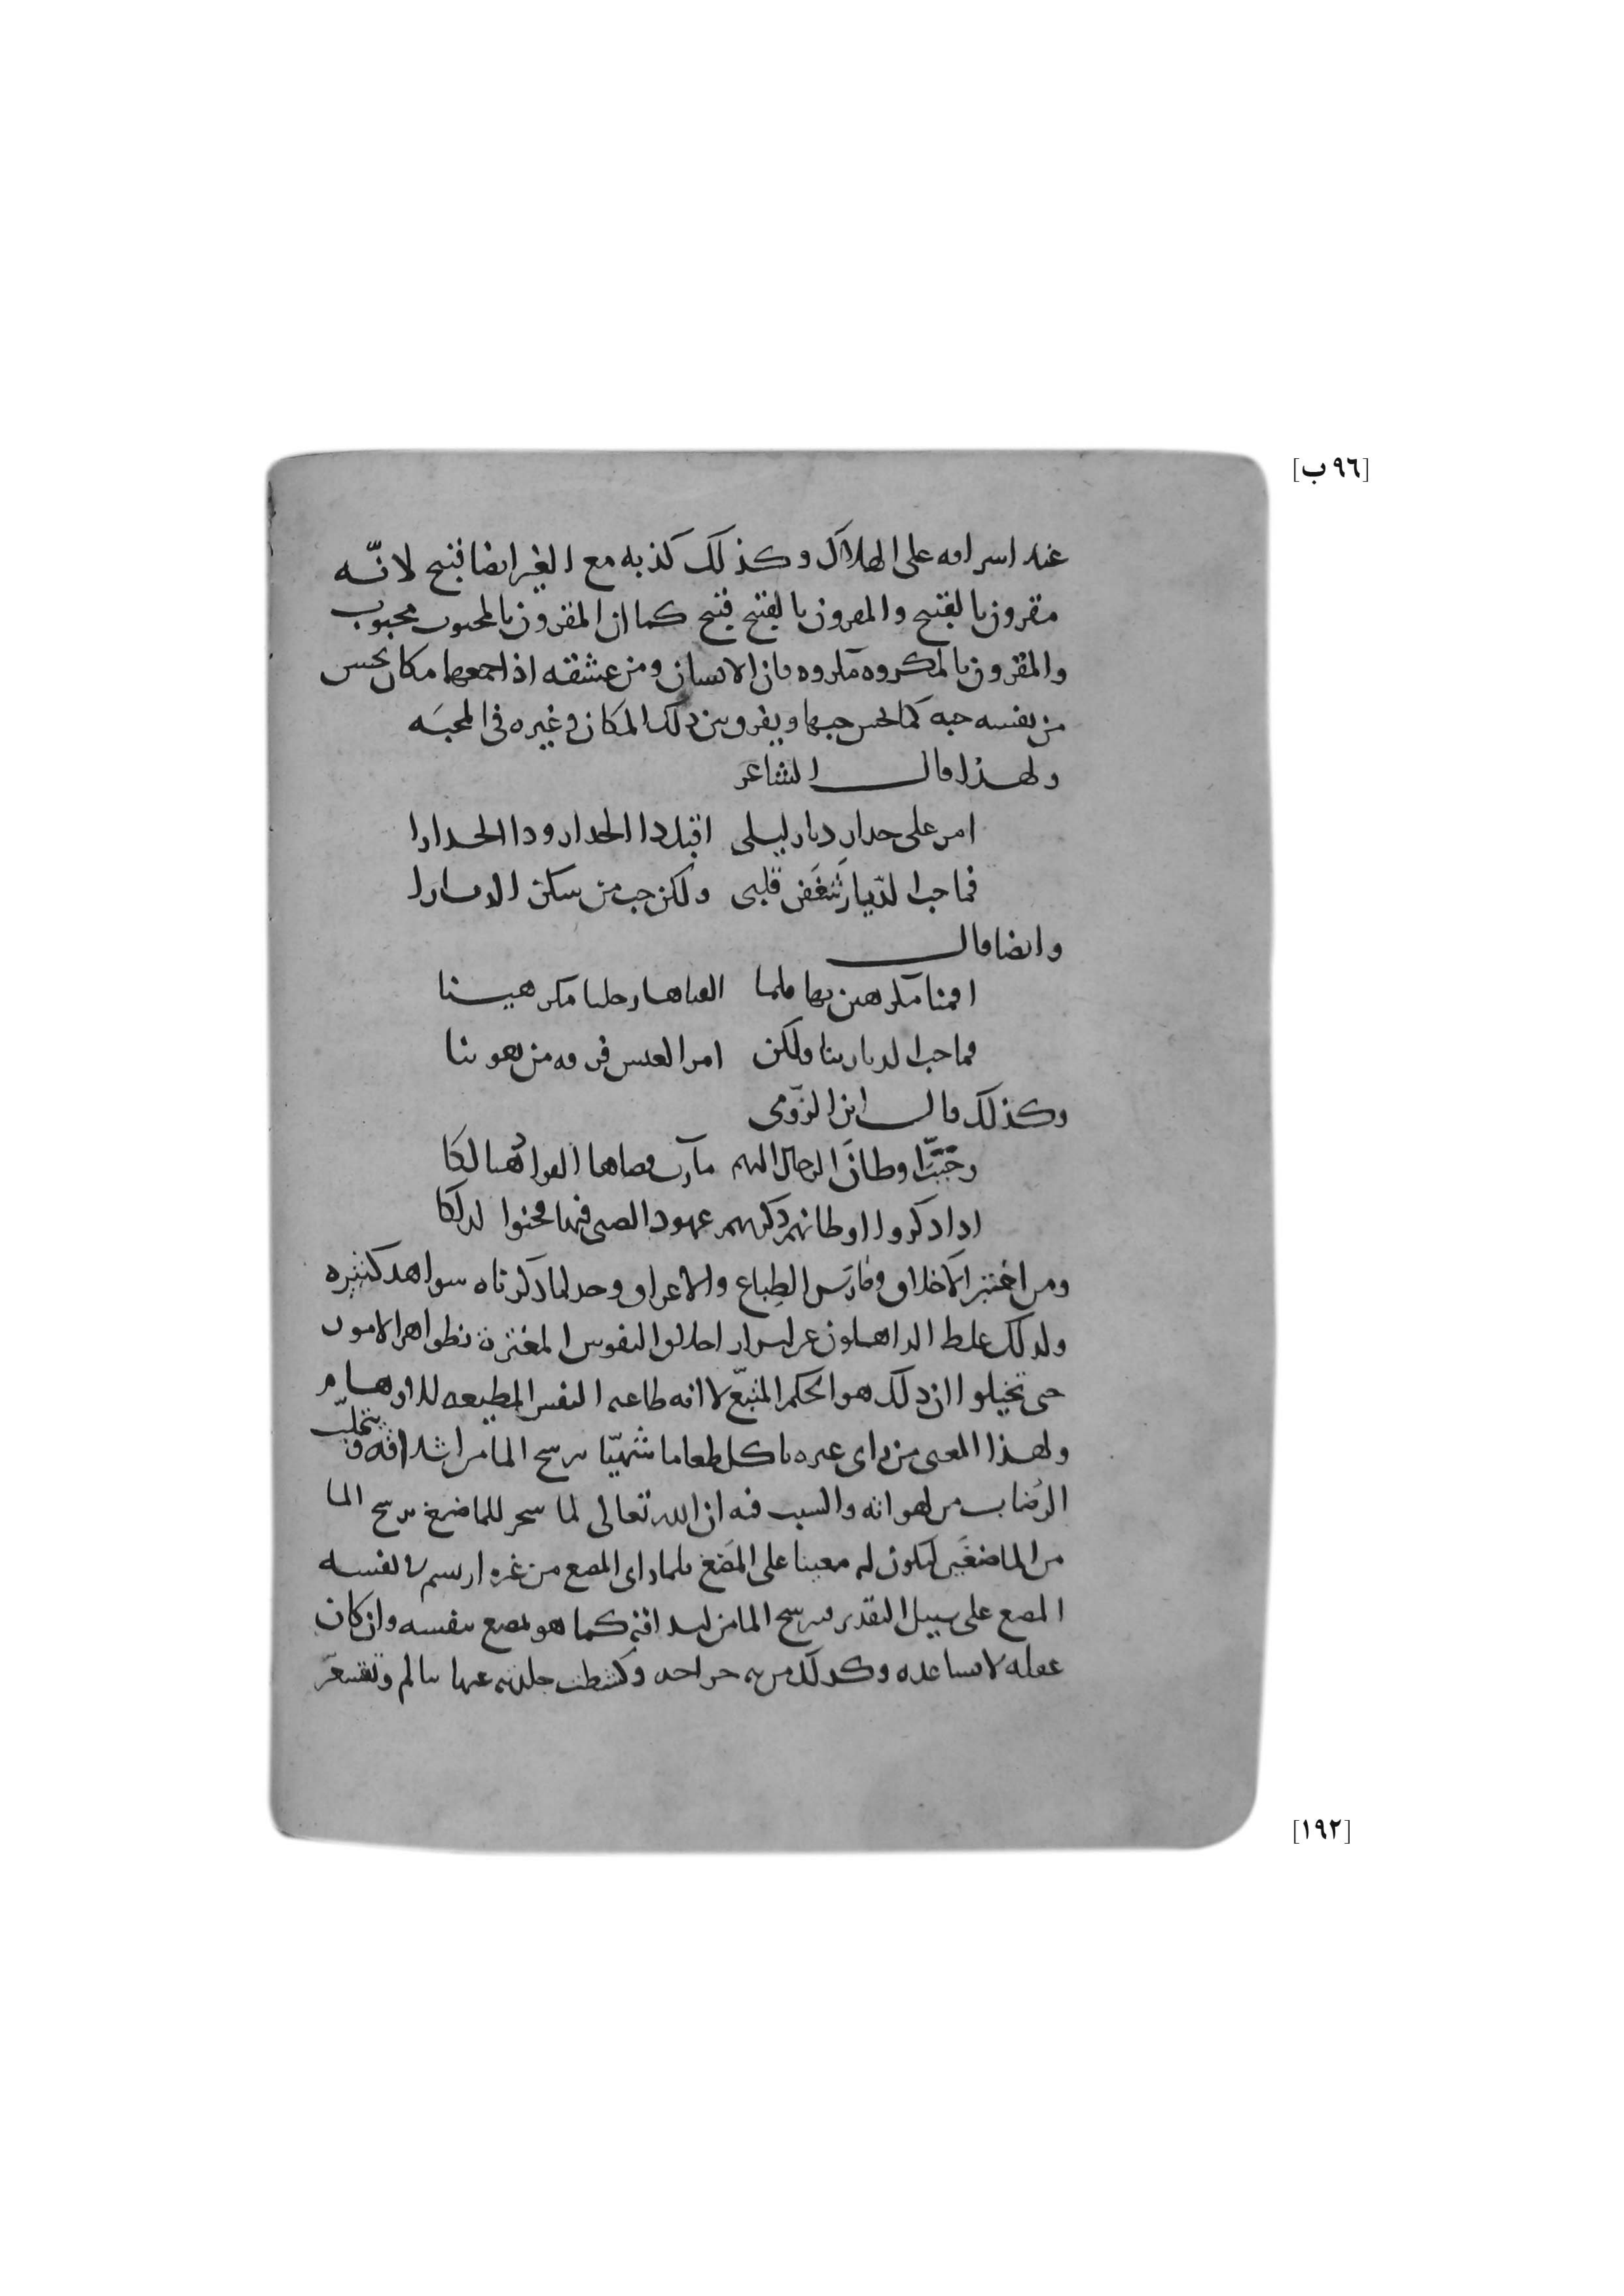 [٩٦ ب]
عند اسرافه على الهلاك وكذلك كذبه مع الغير ايضا قبيح لانّه
مقرون بالقبيح والمقرون بالقبيح قبيح كما ان المقرون بالمحبوب محبوب
والمقرون بالمكروه مكروه فان الانسان ومن عشقه اذا جمعهما مكان يحس
من نفسه حبه كما يحس حبها ويفرق بين ذلك المكان وغيره في المحبَه
ولهذا قال الشاعر
امر على جدار ديار ليلى اقبل ذا الجدار وذا الجدارا
فما حب الدّيار شَغَفن قلبي ولكن حب من سكن الديارا
وايضا قال
اقمنا مكرهين بها فلما الفناها رحلنا مكرهينا
فما حب الديار بنا ولكن امر العيش فرقه من هوينا
وكذلك قال ابن الرّومي
وحَبَّبَ اوطانَ الرجال اليهم مآرب قضاها الفواد هُنالكا
اذا ذكروا اوطانهم ذكرتهم عهود الصبى فيها فحنوا لذلكا
ومن اختبر الاخلاق ومارَس الطِباع والاعراق وجد لما ذكرناه شواهد كثيره
ولذلك غلط الذاهلون عن اسرار اخلاق النفوس المغترة بظواهر الامور
حتى تخيلوا ان ذلك هو الحكم المتبّع لا انه طاعه النفس المطيعه للاوهام
ولهذا المعنى من راى غيره ياكل طعاما شهيّا ترشح الما من اشداقه ويتحلّب
الرُضاب من لهواته والسبب فيه ان الله تعالى لما سخر للماضغ ترشح الما
من الماضغَين ليكون له معينا على المَضغ فلما راى المضغ من غيره ارتسم في نفسه
المضغ على سبيل التقدير فترشح الما من اشداقه كما هو يمضغ بنفسه وان كان
عقله لا يساعده وكذلك من به جراحه وكشطت جلدته عنها يتالم وتقشعرّ
[١٩٢]